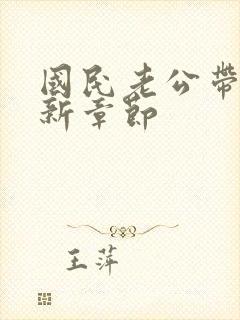 國民老公帶
新章節
王萍